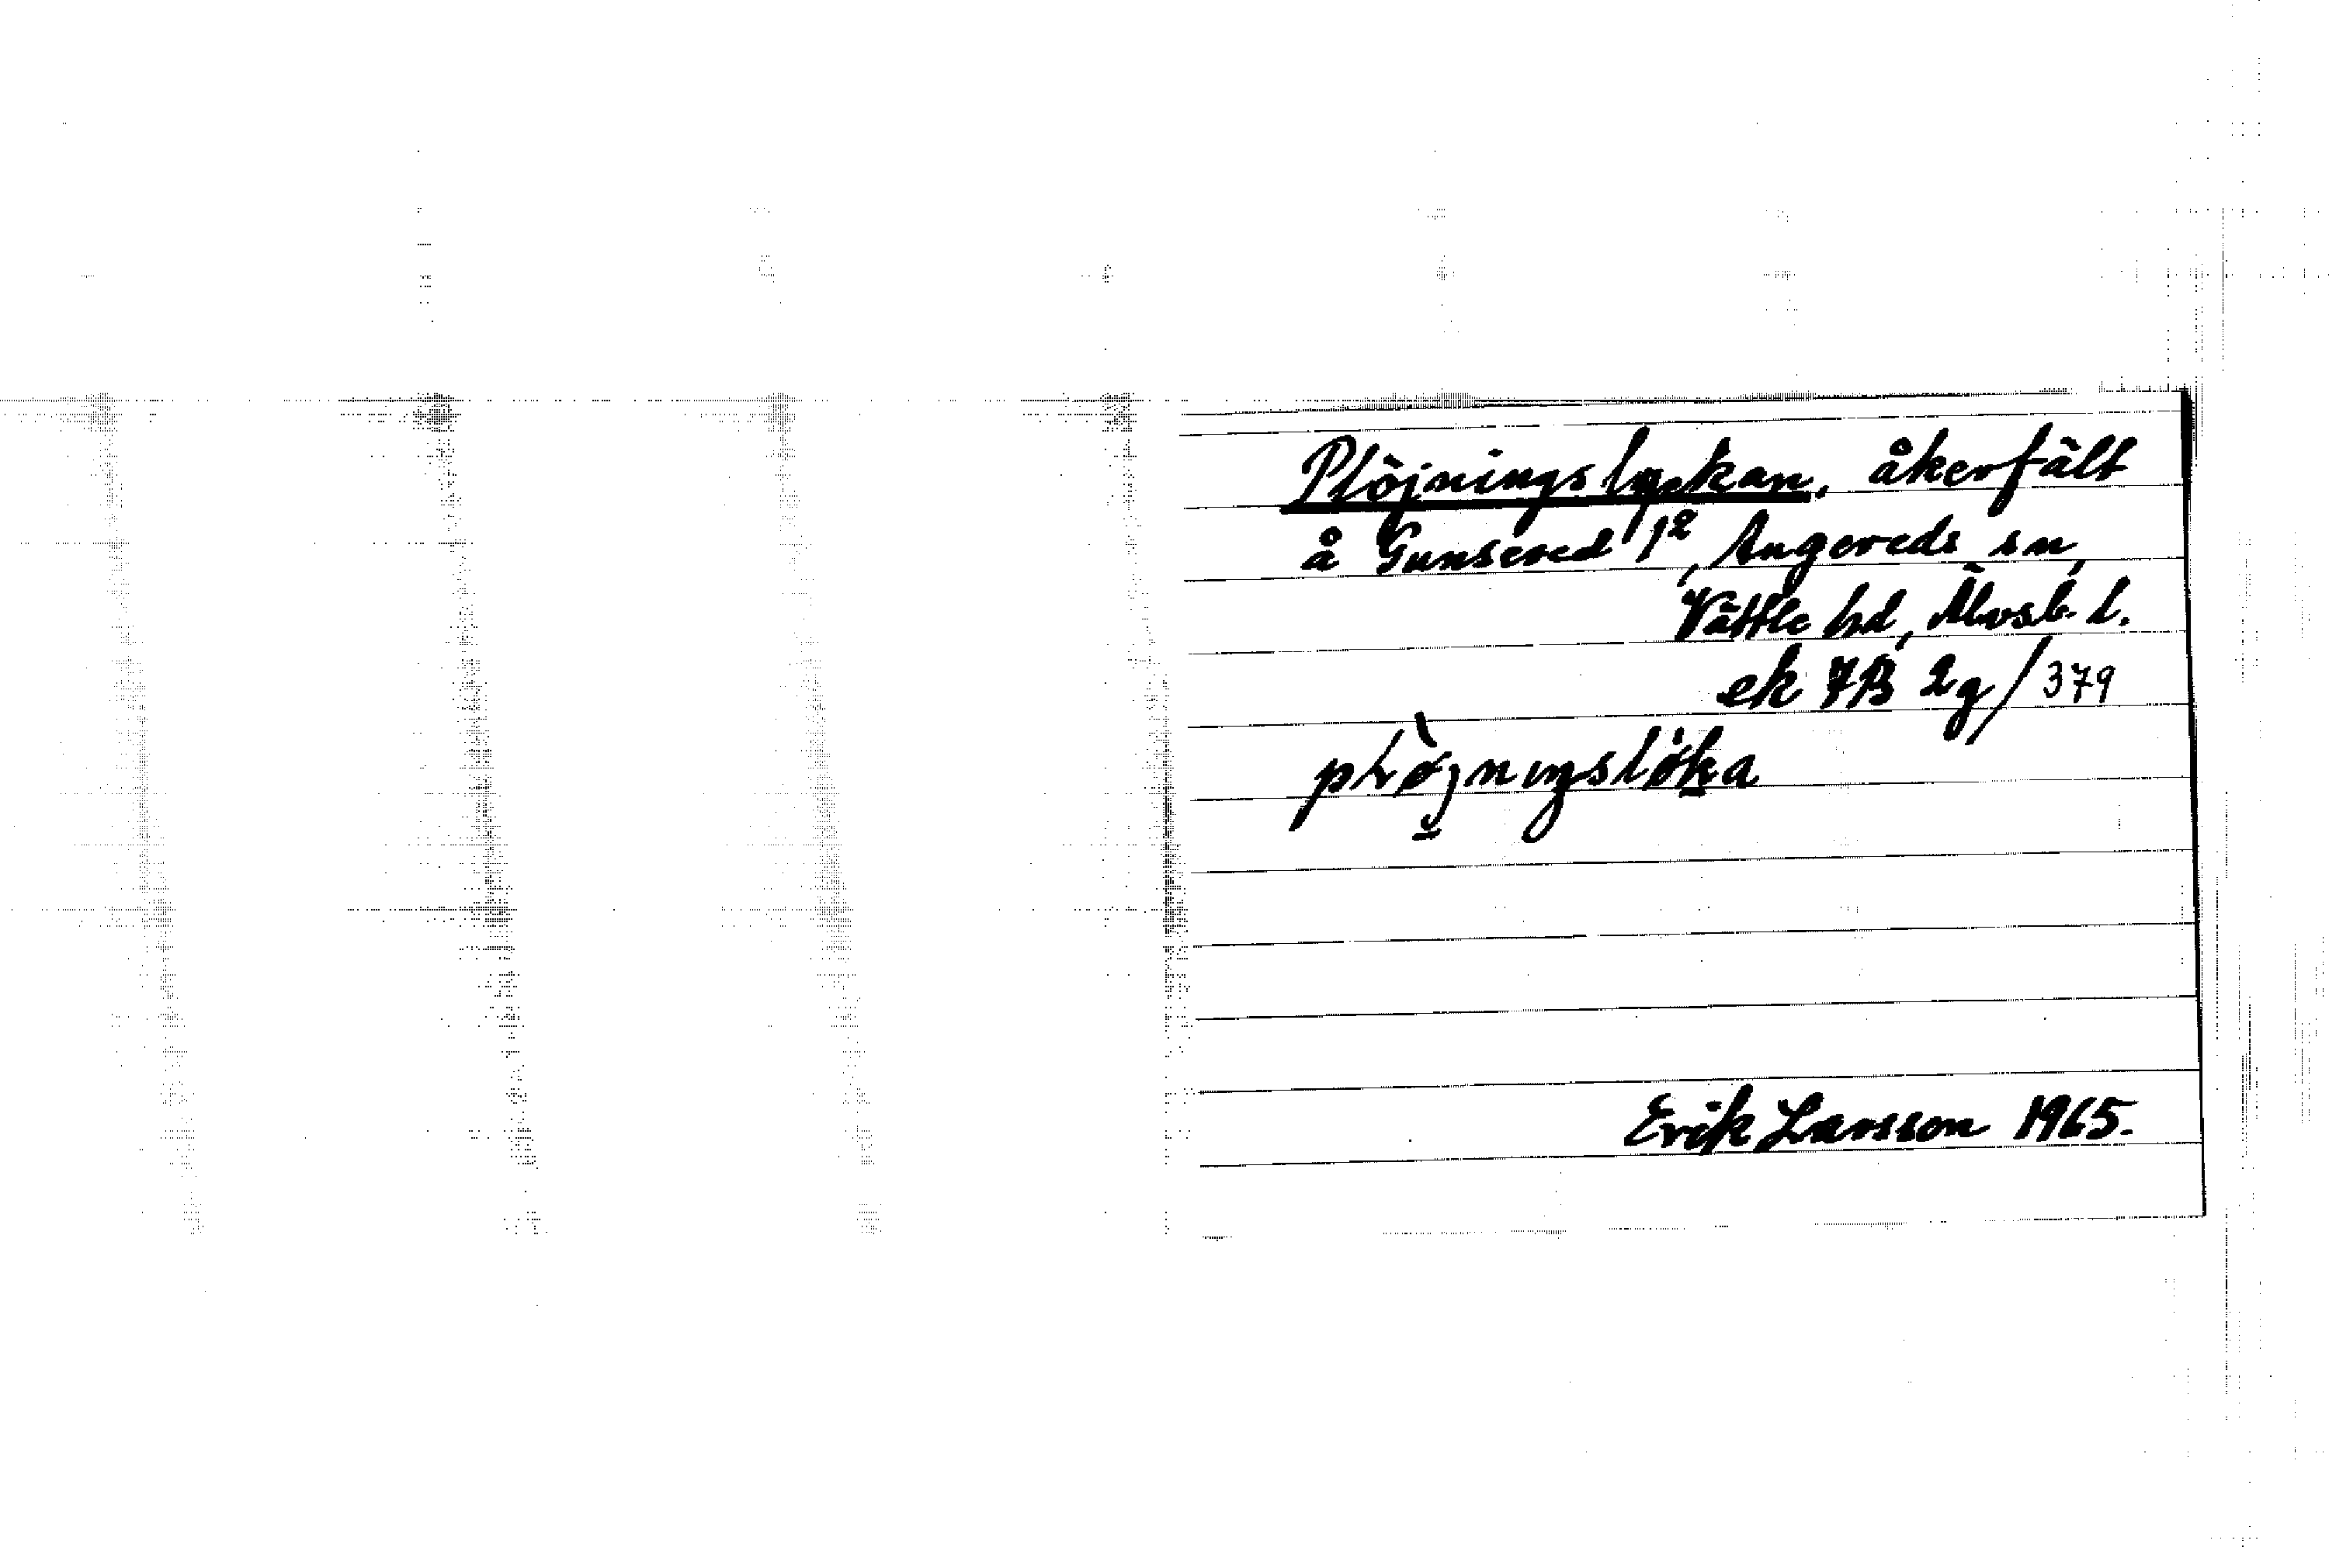 Plöjningslyckan, åkerfält
å Gunsered 1², Angereds sn,
Vättle hd, Älvsb. l.
ek 7B 2g/379
pLø̀jnıŋslöka
Erik Larsson 1965.